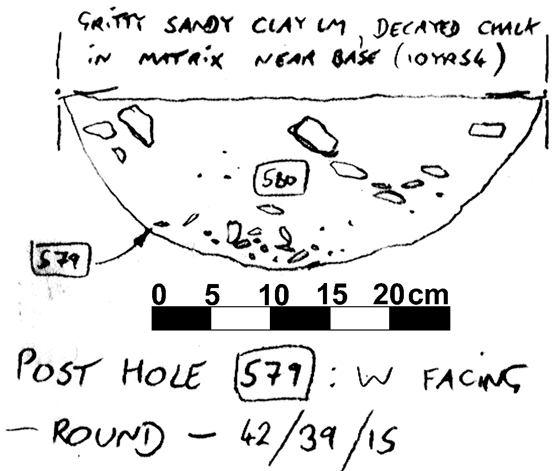 GRITTY SANDY CLAY LM, DECAYED CHALK
IN MATRIX NEAR BASE (10YR54)
580
579
0 5 10 15 20 cm
POST HOLE 579 : W FACING
— ROUND — 42/39/15